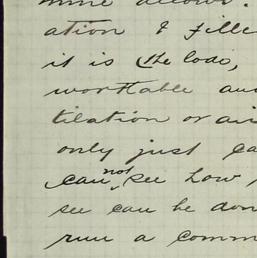 mine allows.
ation & fille
it is the lode,
workable au
tilation or ai
only just ca
can not see how
see can be don
run a comm